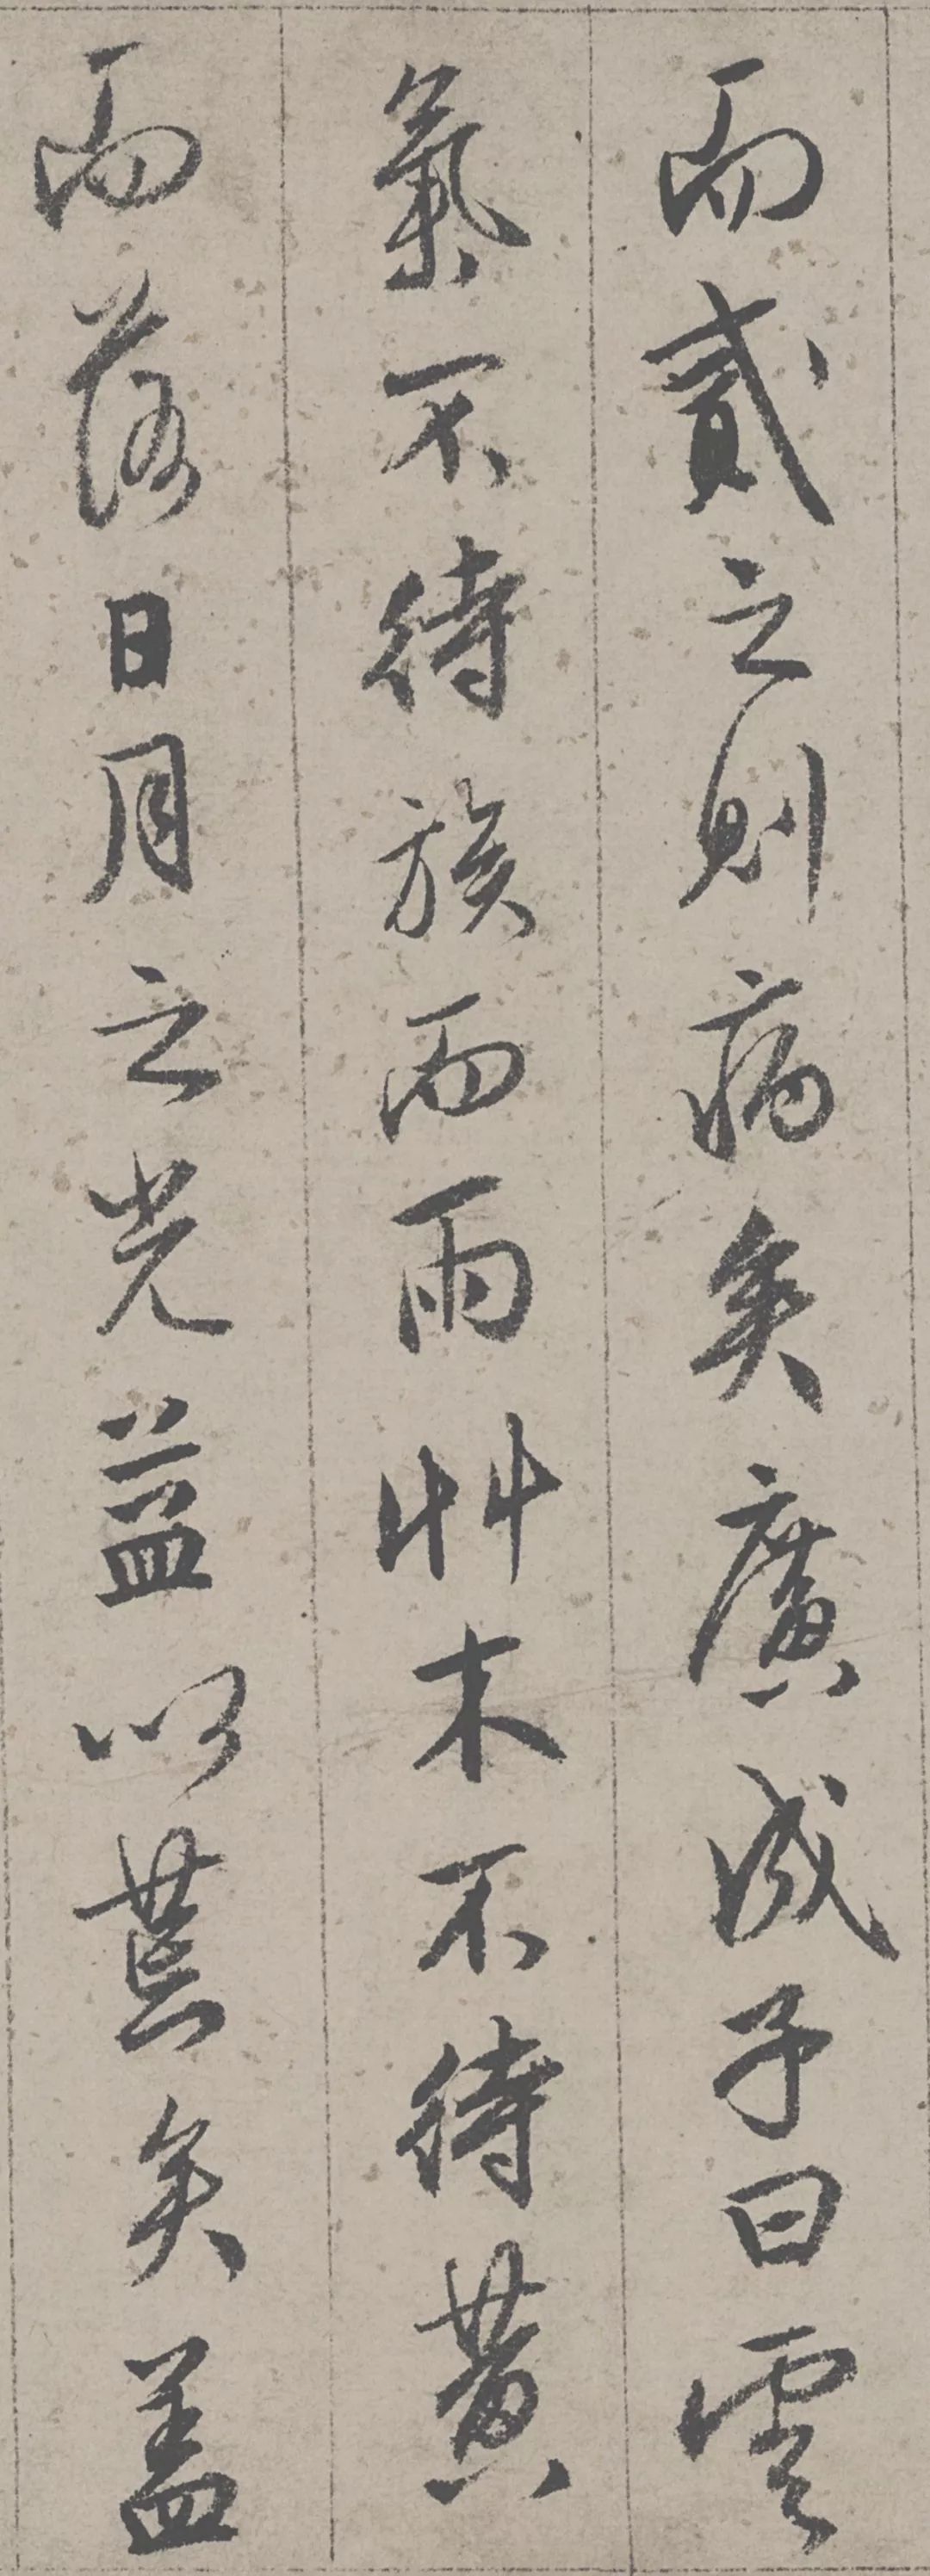 而貳之則病矣廣成子曰雲
氣不待族而雨艸木不待黄
而落日月之光益以荒矣蓋